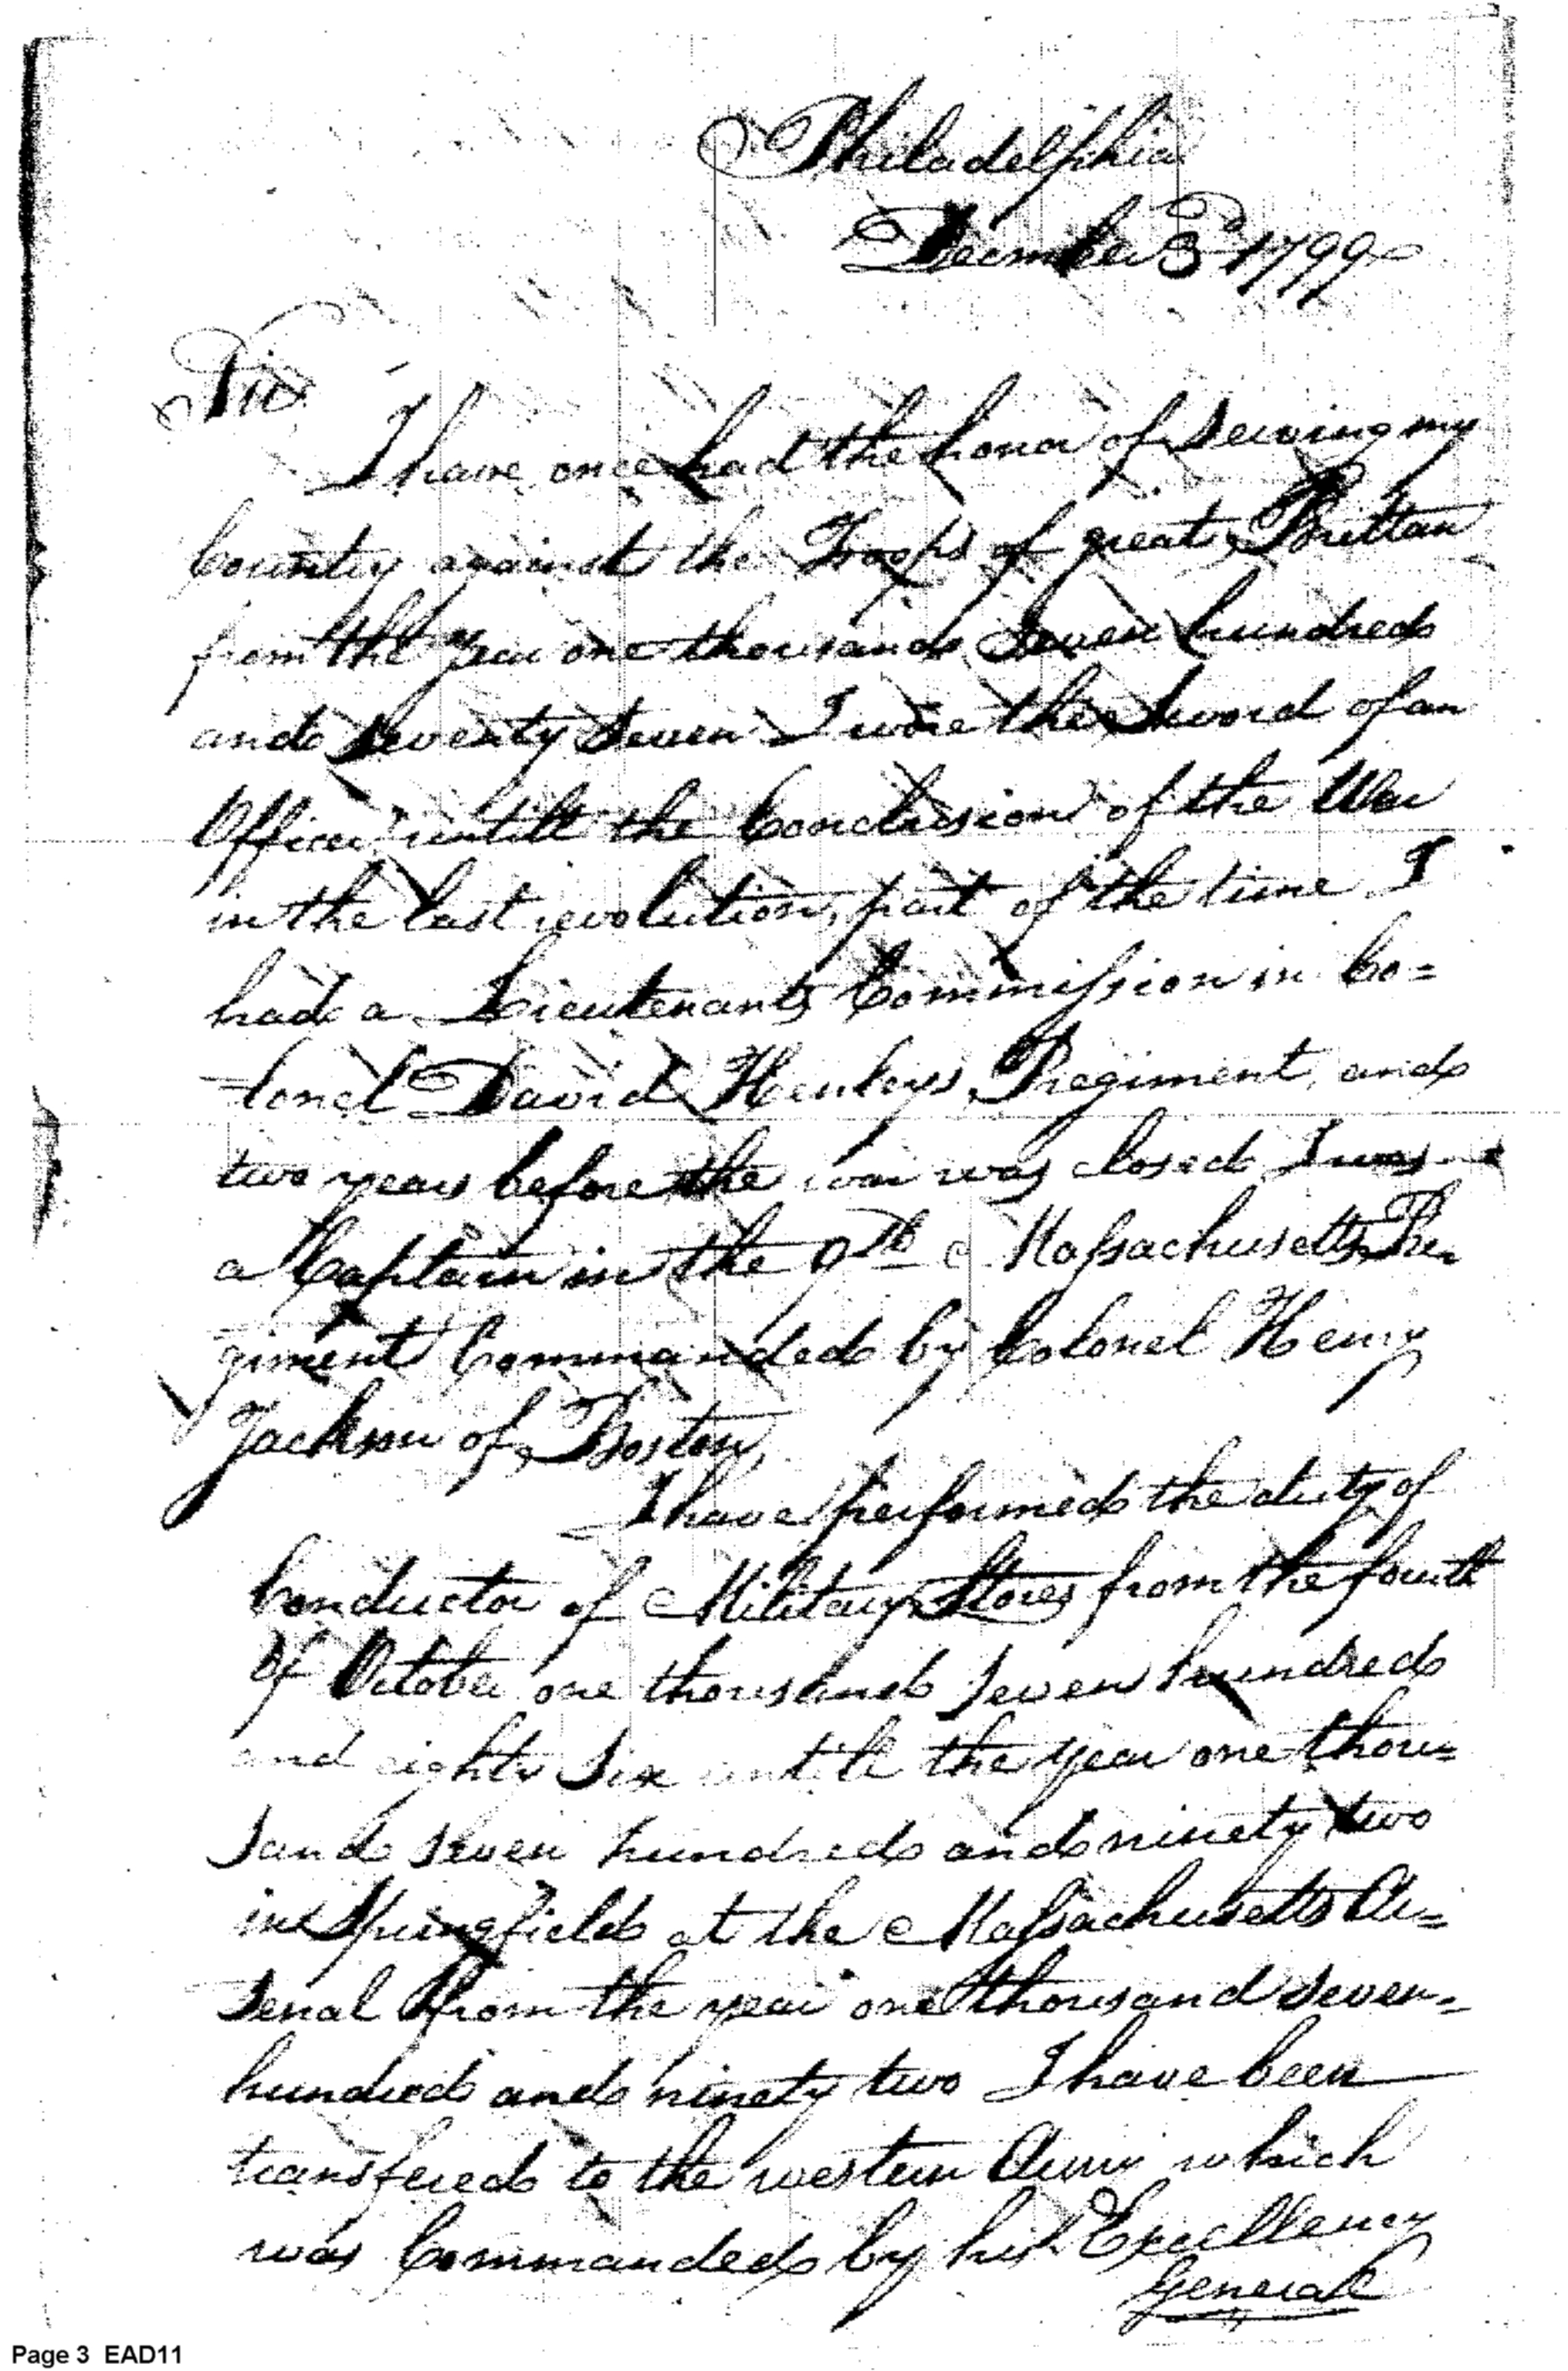 Philadelphia
December 3d 1799
Sir
I have once had the honor of serving my
Country against the Troops of great Brittan
from the Year one thousand Seven hundred
and Seventy Seven I wore the Sword of an
Officer untill the Conclusion of the War
in the last revolution, part of the time I
had a Lieutenants Commission in Co=
lonel David Henleys Regiment, and
two years before the war was closed I was
a Captain in the 9th Massachusetts Re
giment Commanded by Colonel Henry
Jackson of Boston,
I have performed the duty of
Conductor of Military Stores from the fourth
Of October one thousand Seven hundred
and eighty Six untill the Year one thou=
sand seven hundred and ninety two
in Springfield at the Massachusetts Ar=
senal from the year one thousand seven=
hundred and ninety two I have been
transfered to the western Army which
was Commanded by his Excellency
General
Page 3 EAD11